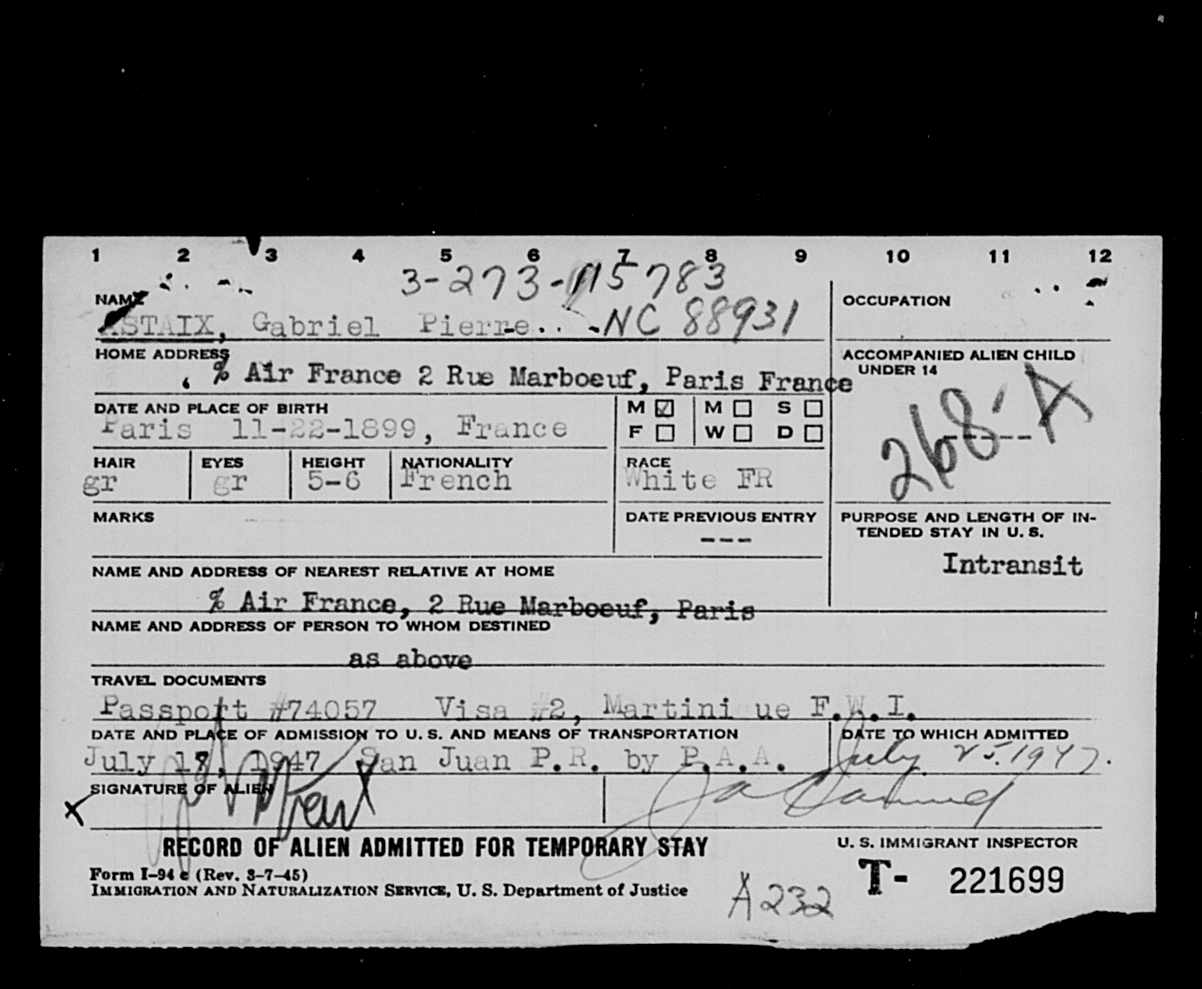 1 2 3 4 5 6 7 8 9 10 11 12
3-273-115783
NAME
ASTAIX, Gabriel Pierre NC 88931
OCCUPATION
HOME ADDRESS
% Air France 2 Rue Marboeuf, Paris France
ACCOMPANIED ALIEN CHILD
UNDER 14
268-A
DATE AND PLACE OF BIRTH
Paris 11-22-1899, France
M ☑ M ☐ S ☐
F ☐ W ☐ D ☐
HAIR EYES HEIGHT NATIONALITY RACE
gr gr 5-6 French White FR
MARKS
DATE PREVIOUS ENTRY
---
PURPOSE AND LENGTH OF IN-
TENDED STAY IN U. S.
Intransit
NAME AND ADDRESS OF NEAREST RELATIVE AT HOME
% Air France, 2 Rue Marboeuf, Paris
NAME AND ADDRESS OF PERSON TO WHOM DESTINED
as above
TRAVEL DOCUMENTS
Passport #74057 Visa #2, Martini ue F.W.I.
DATE AND PLACE OF ADMISSION TO U. S. AND MEANS OF TRANSPORTATION
DATE TO WHICH ADMITTED
July 18, 1947 San Juan P.R. by P.A.A. July 25. 1947.
SIGNATURE OF ALIEN
X
RECORD OF ALIEN ADMITTED FOR TEMPORARY STAY
U. S. IMMIGRANT INSPECTOR
Form I-94 c (Rev. 3-7-45)
IMMIGRATION AND NATURALIZATION SERVICE, U. S. Department of Justice
A232
T- 221699